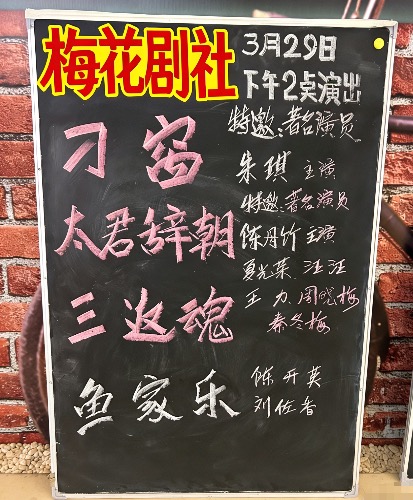 梅花剧社
3月29日
下午2点演出
刁窗
特邀:著名演员
朱琪 主演
太君辞朝
特邀:著名演员
陈丹竹 主演
夏光荣 汪汪
三返魂
王力 周晓梅
秦冬梅
鱼家乐
陈开英
刘佐香